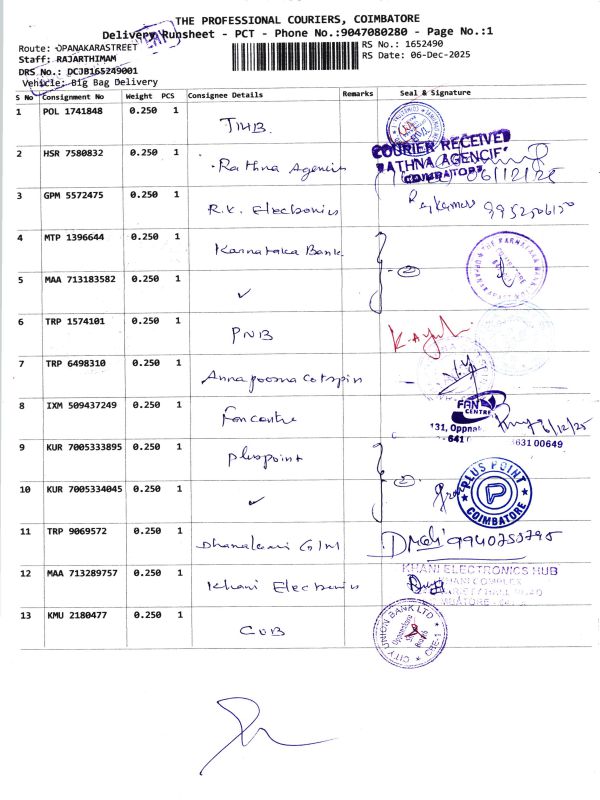 THE PROFESSIONAL COURIERS, COIMBATORE
Delivery Runsheet - PCT - Phone No.:9047080280 - Page No.:1
Route: OPANAKARASTREET
RS No.: 1652490
Staff: RAJARTHIMAM
RS Date: 06-Dec-2025
DRS No.: DCJB165249001
Vehicle: Big Bag Delivery
S No Consignment No Weight PCS Consignee Details Remarks Seal & Signature
1 POL 1741848 0.250 1 TMB
2 HSR 7580832 0.250 1 Rathna Agencies COURIER RECEIVED RATHNA AGENCIE COIMBATORE 06/12/25
3 GPM 5572475 0.250 1 R.K. Electronics
4 MTP 1396644 0.250 1 Karnataka Bank 2 THE KARNATAKA BANK
5 MAA 713183582 0.250 1 ✓
6 TRP 1574101 0.250 1 PNB
7 TRP 6498310 0.250 1 Annapoorna Cotspin
8 IXM 509437249 0.250 1 Fancentre FAN CENTRE 131, Oppna 641 0 631 00649 6/12/25
9 KUR 7005333895 0.250 1 pluspoint 2 PLUS POINT P COIMBATORE
10 KUR 7005334045 0.250 1 ✓
11 TRP 9069572 0.250 1
12 MAA 713289757 0.250 1 Khani Electronics KHANI ELECTRONICS HUB KHANI COMPLEX
13 KMU 2180477 0.250 1 CUB CITY UNION BANK LTD CBE-1